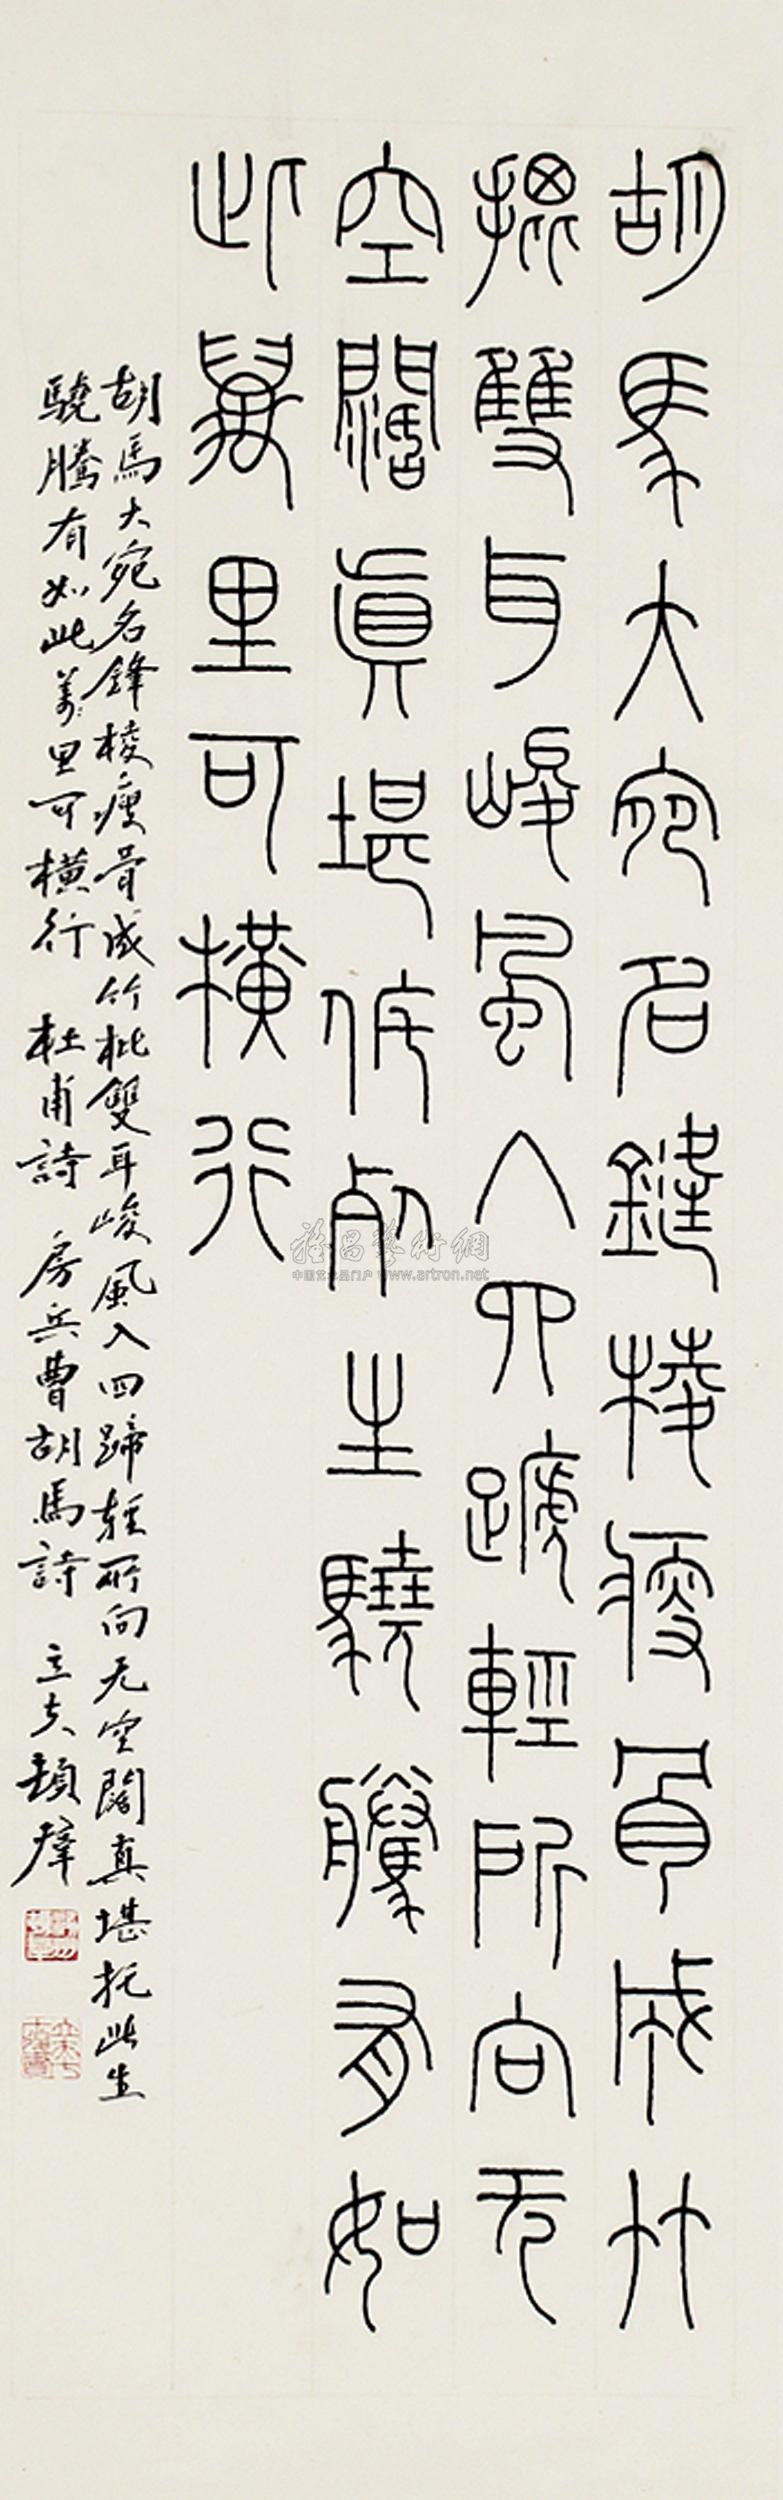 胡馬大宛名鋒棱瘦骨成竹
批雙耳峻風入四蹄輕所向无
空闊真堪托死生驍騰有如
此萬里可橫行
胡馬大宛名鋒棱瘦骨成竹批雙耳峻風入四蹄輕所向无空闊真堪托此生
驍騰有如此萬里可橫行 杜甫詩 房兵曹胡馬詩
雅昌藝術網
中国艺术品门户 www.artron.net